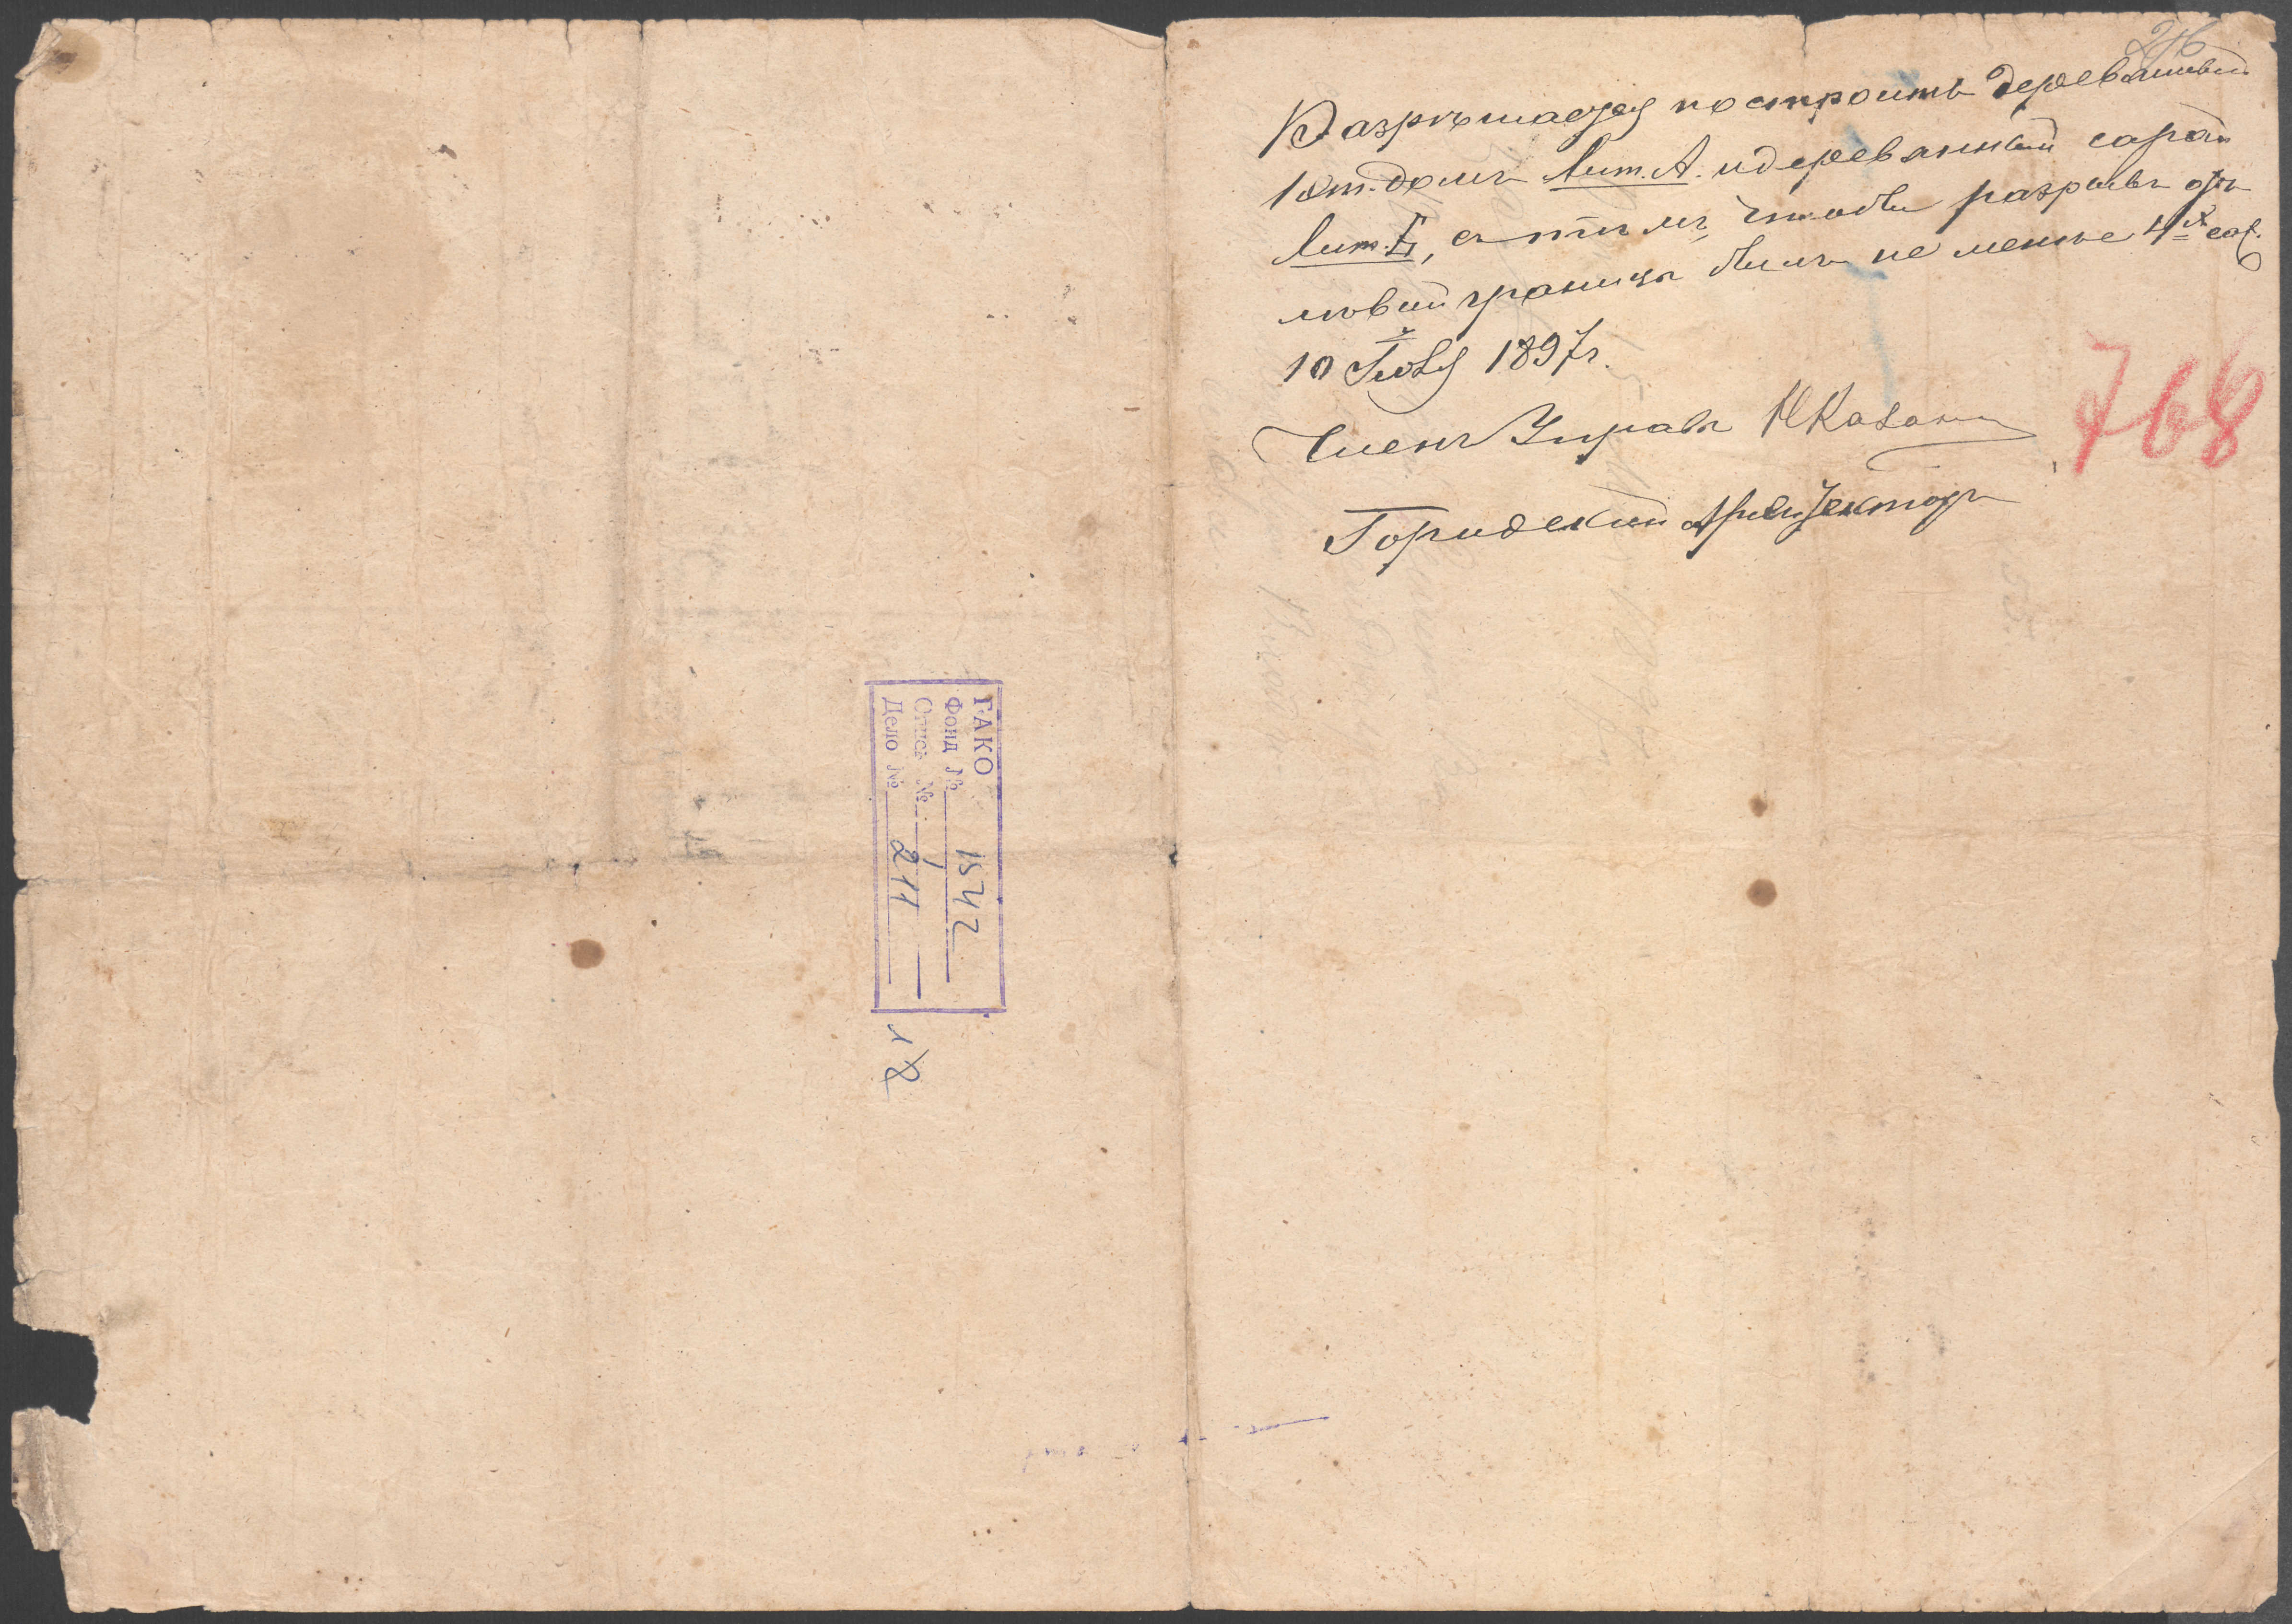 Разрѣшается построить деревянный
1 эт. домъ Лит. А. и деревянный сарай
Лит. Б, съ тѣмъ, чтобы разрывъ отъ
лѣвой границы былъ не менѣе 4х саж.
10 Іюля 1897 г.
Членъ Управы
Городской Архитекторъ
768
ГАКО
Фонд № 1542
Опись № 1
Дело № 211